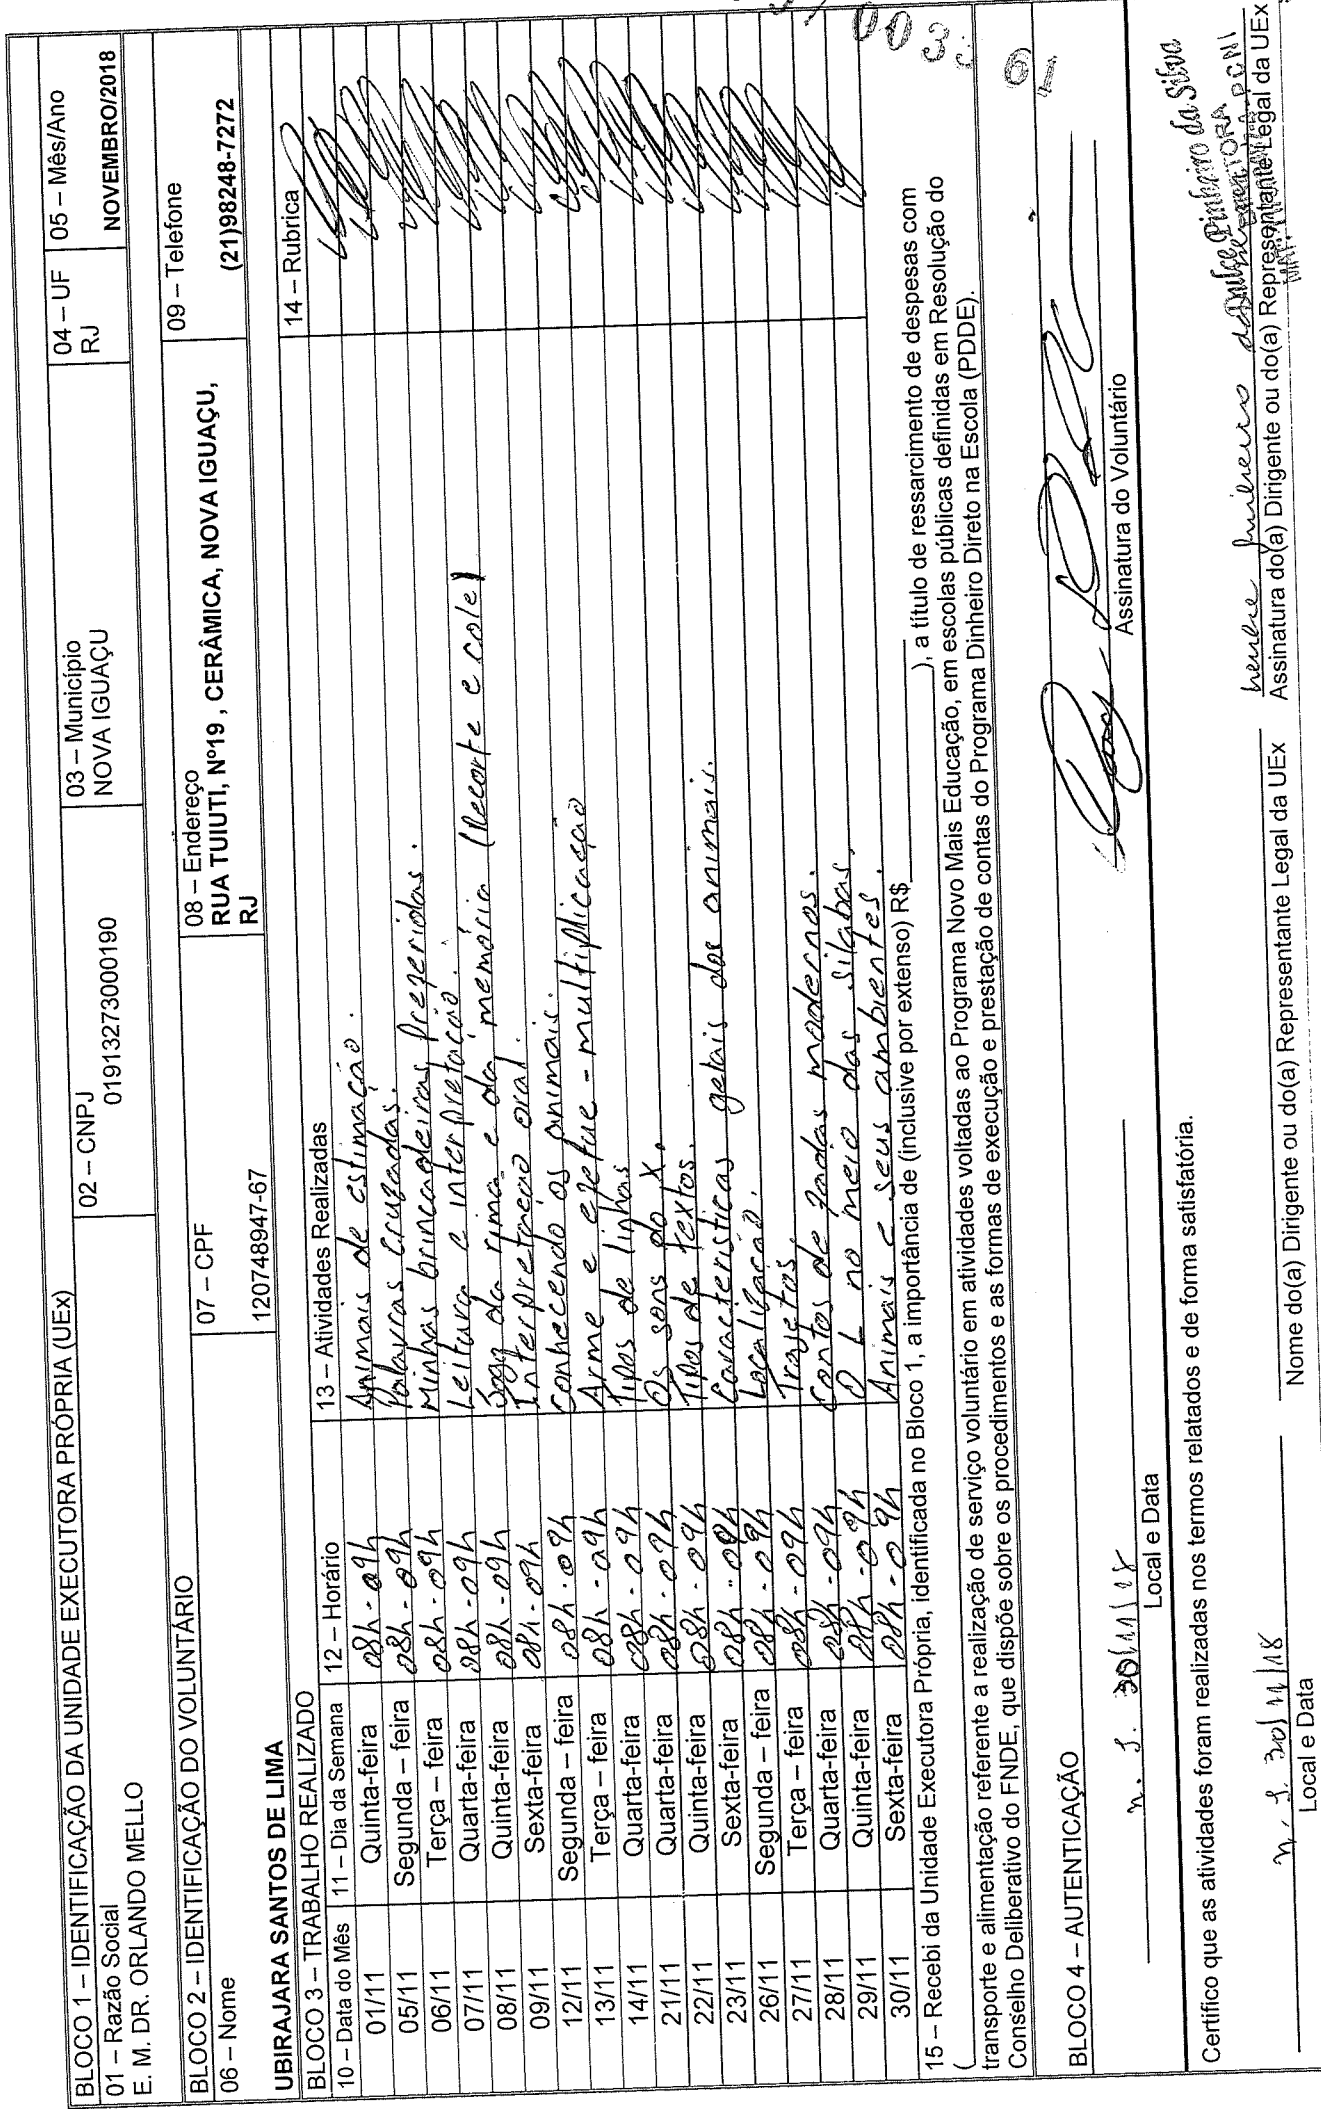 BLOCO 1 – IDENTIFICAÇÃO DA UNIDADE EXECUTORA PRÓPRIA (UEx)
01 – Razão Social
E. M. DR. ORLANDO MELLO
02 – CNPJ
01913273000190
03 – Município
NOVA IGUAÇU
04 – UF
RJ
05 – Mês/Ano
NOVEMBRO/2018
BLOCO 2 – IDENTIFICAÇÃO DO VOLUNTÁRIO
06 – Nome
UBIRAJARA SANTOS DE LIMA
07 – CPF
120748947-67
08 – Endereço
RUA TUIUTI, Nº19 , CERÂMICA, NOVA IGUAÇU,
RJ
09 – Telefone
(21)98248-7272
BLOCO 3 – TRABALHO REALIZADO
10 – Data do Mês 11 – Dia da Semana 12 – Horário 13 – Atividades Realizadas 14 – Rubrica
01/11 Quinta-feira 08h - 09h Animais de estimação.
05/11 Segunda – feira 08h - 09h Palavras cruzadas.
06/11 Terça – feira 08h - 09h Minhas brincadeiras prezeridas.
07/11 Quarta-feira 08h - 09h Leitura e interpretação.
08/11 Quinta-feira 08h - 09h Jogo da rima e da memória (Recorte e cole)
09/11 Sexta-feira 08h - 09h Interpretação oral.
12/11 Segunda – feira 08h - 09h Conhecendo os animais.
13/11 Terça – feira 08h - 09h Arme e efetue - multiplicação
14/11 Quarta-feira 08h - 09h Tipos de linhas
21/11 Quarta-feira 08h - 09h Os sons do X.
22/11 Quinta-feira 08h - 09h Tipos de textos.
23/11 Sexta-feira 08h - 09h Características gerais dos animais.
26/11 Segunda – feira 08h - 09h Localização.
27/11 Terça – feira 08h - 09h Trajetos.
28/11 Quarta-feira 08h - 09h Contos de fadas modernos.
29/11 Quinta-feira 08h - 09h O L no meio das sílabas.
30/11 Sexta-feira 08h - 09h Animais e seus ambientes.
15 – Recebi da Unidade Executora Própria, identificada no Bloco 1, a importância de (inclusive por extenso) R$
( ), a título de ressarcimento de despesas com
transporte e alimentação referente a realização de serviço voluntário em atividades voltadas ao Programa Novo Mais Educação, em escolas públicas definidas em Resolução do
Conselho Deliberativo do FNDE, que dispõe sobre os procedimentos e as formas de execução e prestação de contas do Programa Dinheiro Direto na Escola (PDDE).
BLOCO 4 – AUTENTICAÇÃO
n. I. 30/11/18
Local e Data
Assinatura do Voluntário
Certifico que as atividades foram realizadas nos termos relatados e de forma satisfatória.
n. I. 30/11/18
Local e Data
Nome do(a) Dirigente ou do(a) Representante Legal da UEx
Pinheiro da Silva
Assinatura do(a) Dirigente ou do(a) Representante Legal da UEx